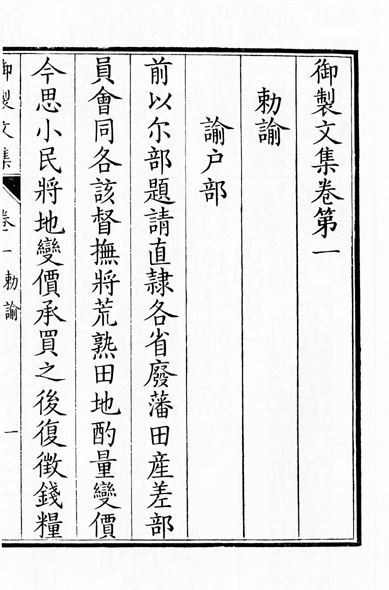 御製文集卷第一
勅諭
諭户部
前以尔部題請直隷各省廢藩田産差部
員會同各該督撫將荒熟田地酌量變價
今思小民將地變價承買之後復徵錢糧
御製文集 卷一 勅諭 一